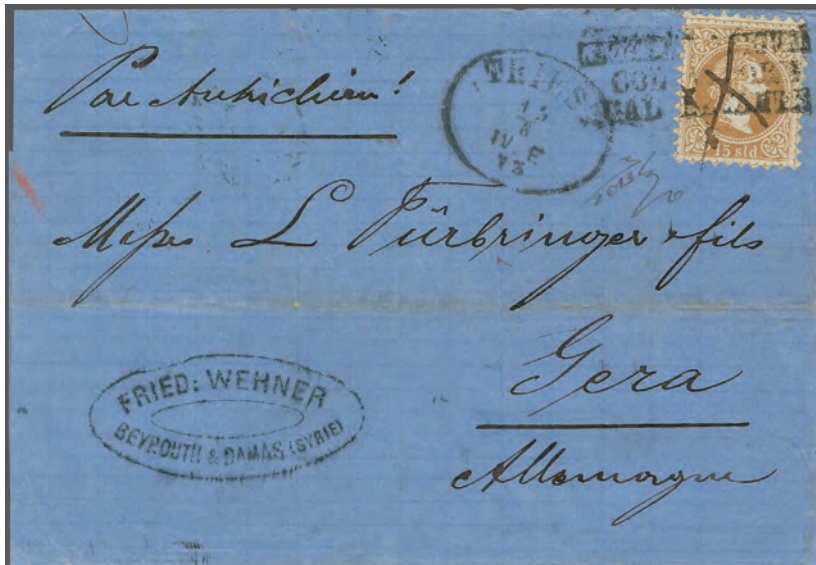 Par Autrichien!
TRIES
15 sld.
Messrs L Fürbringer & fils
Gera
Allemagne
FRIED: WEHNER
BEYROUTH & DAMAS (SYRIE)
COL